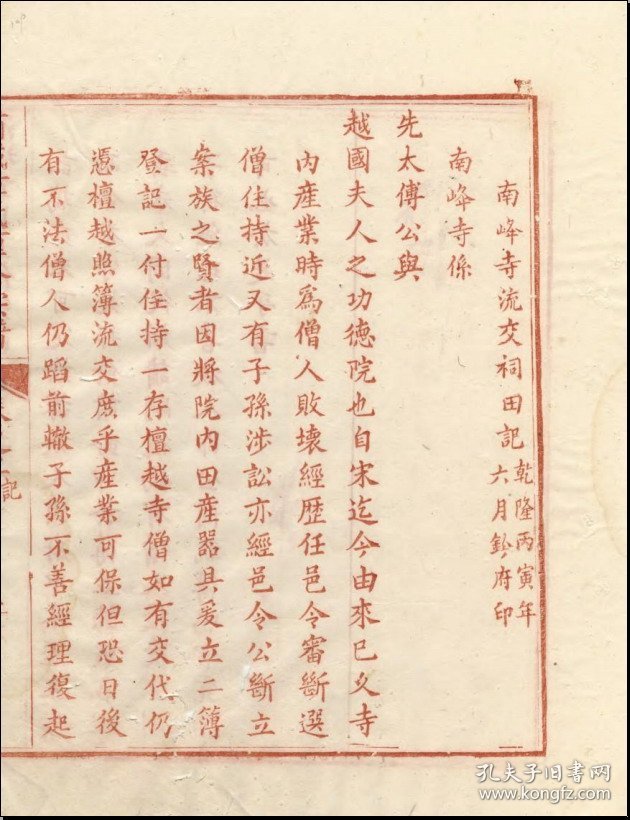 南峰寺流交祠田記 乾隆丙寅年
六月鈐府印
南峰寺係
先太傅公與
越國夫人之功德院也自宋迄今由來已久寺
內產業時爲僧人敗壞經歷任邑令審斷選
僧住持近又有子孫涉訟亦經邑令公斷立
案族之賢者因將院內田產器具爰立二簿
登記一付住持一存檀越寺僧如有交代仍
憑檀越照簿流交庶乎產業可保但恐日後
有不法僧人仍蹈前轍子孫不善經理復起
記
孔夫子旧書网
www.kongfz.com